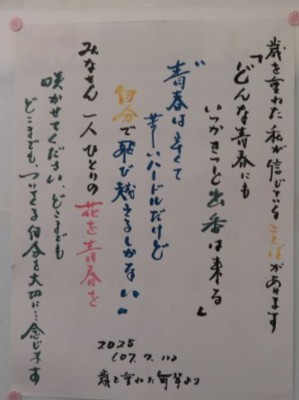 歳を重ねた私が信じていることばがあります
「どんな青春にも
いつかきっと出番は来る」
"青春は辛くて
苦しいハードルだけど
自分で飛び越えるしかない"
みなさん 一人ひとりの花を青春を
咲かせてください、どこまでも
どこまでも、ついてくる自分を大切に…念じます
2025
(07.7.11)
歳を重ねた より